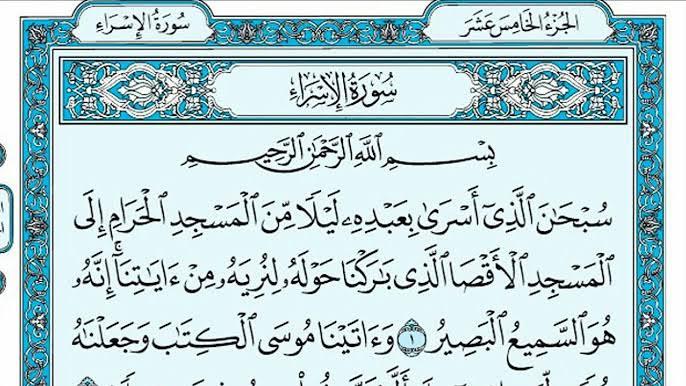 الجُزْءُ الخَامِسَ عَشَرَ
سُورَةُ الإِسْرَاءِ
سُورَةُ الإِسْرَاءِ
بِسْمِ اللَّهِ الرَّحْمَٰنِ الرَّحِيمِ
سُبْحَانَ الَّذِىٓ أَسْرَىٰ بِعَبْدِهِۦ لَيْلًا مِّنَ الْمَسْجِدِ الْحَرَامِ إِلَى
الْمَسْجِدِ الْأَقْصَا الَّذِى بَارَكْنَا حَوْلَهُۥ لِنُرِيَهُۥ مِنْ ءَايَاتِنَآۚ إِنَّهُۥ
هُوَ السَّمِيعُ الْبَصِيرُ ١ وَءَاتَيْنَا مُوسَى الْكِتَابَ وَجَعَلْنَاهُ